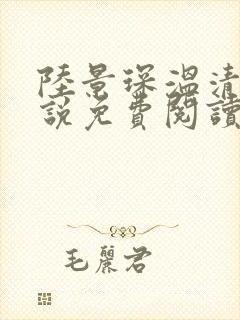 陸景琛溫清
說免費閱讀
毛麗君